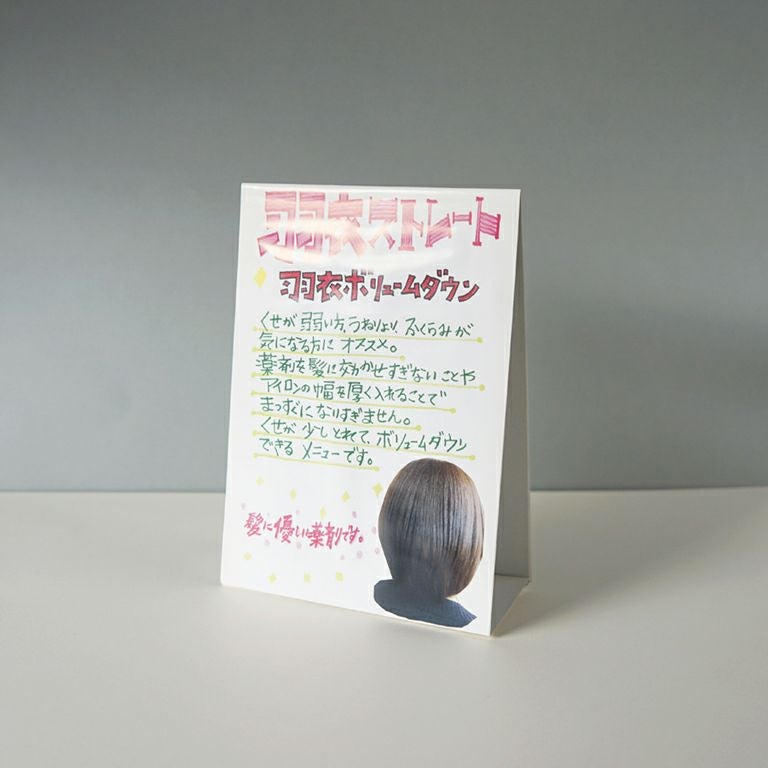 羽衣ストレート
羽衣ボリュームダウン
くせが弱い方、うねりより、ふくらみが
気になる方にオススメ。
薬剤を髪に効かせすぎないことや
アイロンの幅を厚く入れることで
まっすぐになりすぎません。
くせが少しとれて、ボリュームダウン
できるメニューです。
髪に優しい薬剤です。